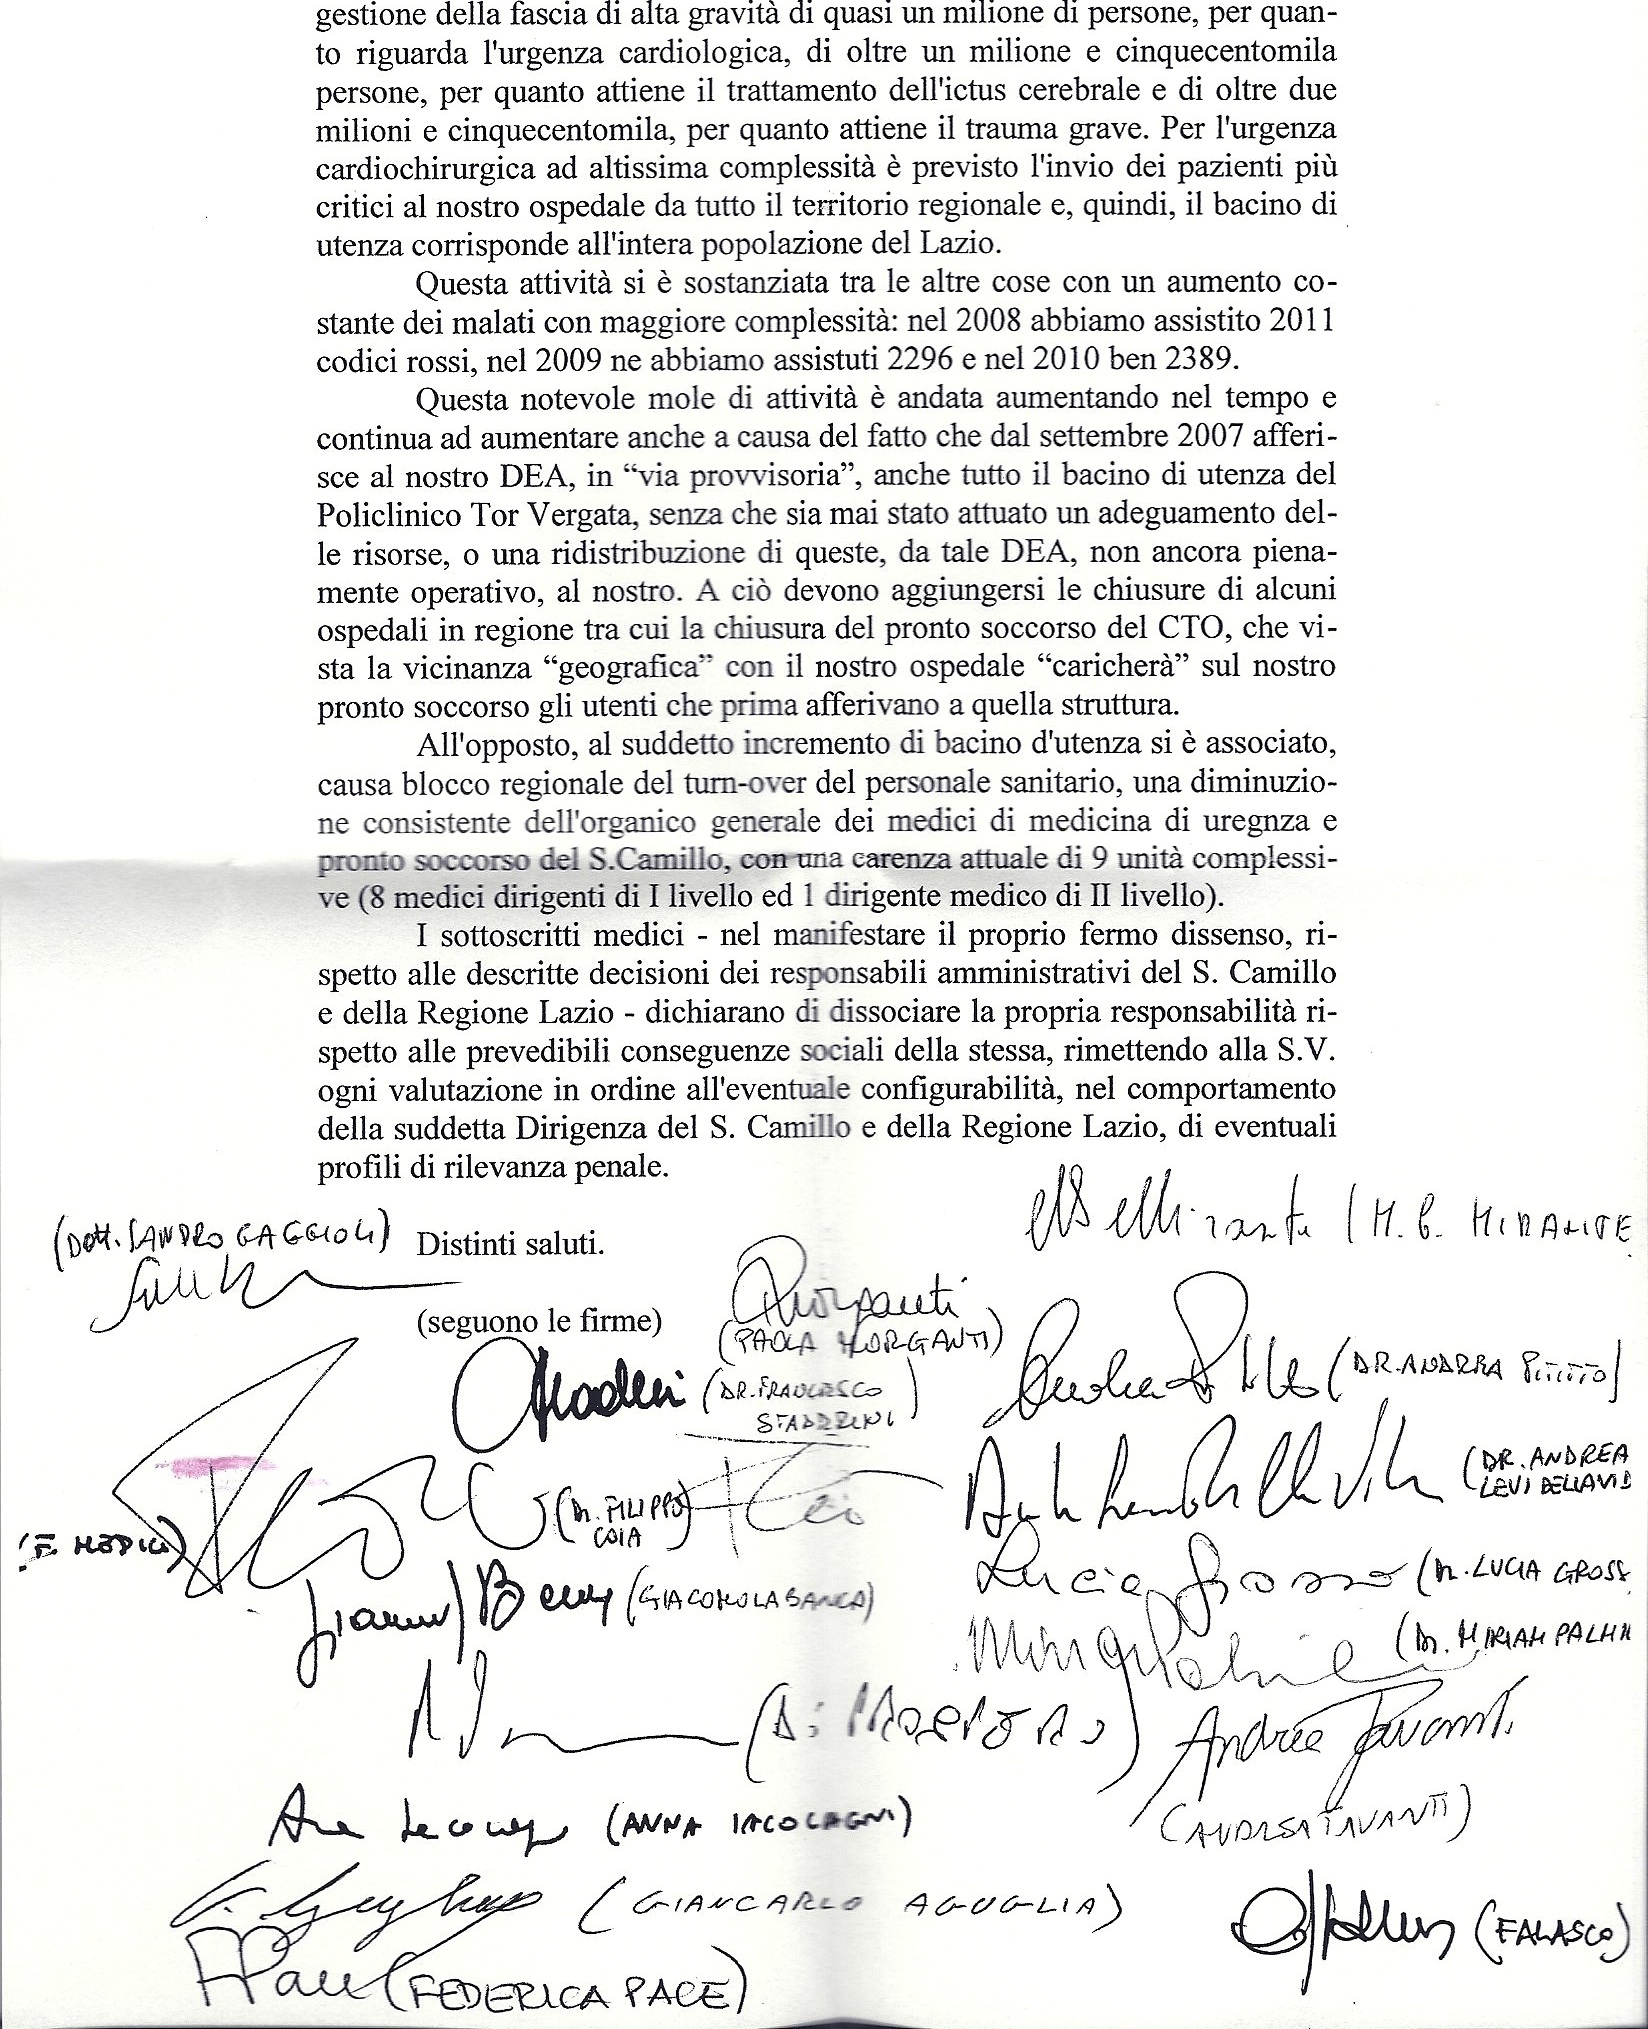 gestione della fascia di alta gravità di quasi un milione di persone, per quan-
to riguarda l'urgenza cardiologica, di oltre un milione e cinquecentomila
persone, per quanto attiene il trattamento dell'ictus cerebrale e di oltre due
milioni e cinquecentomila, per quanto attiene il trauma grave. Per l'urgenza
cardiochirurgica ad altissima complessità è previsto l'invio dei pazienti più
critici al nostro ospedale da tutto il territorio regionale e, quindi, il bacino di
utenza corrisponde all'intera popolazione del Lazio.
Questa attività si è sostanziata tra le altre cose con un aumento co-
stante dei malati con maggiore complessità: nel 2008 abbiamo assistito 2011
codici rossi, nel 2009 ne abbiamo assistuti 2296 e nel 2010 ben 2389.
Questa notevole mole di attività è andata aumentando nel tempo e
continua ad aumentare anche a causa del fatto che dal settembre 2007 afferi-
sce al nostro DEA, in “via provvisoria”, anche tutto il bacino di utenza del
Policlinico Tor Vergata, senza che sia mai stato attuato un adeguamento del-
le risorse, o una ridistribuzione di queste, da tale DEA, non ancora piena-
mente operativo, al nostro. A ciò devono aggiungersi le chiusure di alcuni
ospedali in regione tra cui la chiusura del pronto soccorso del CTO, che vi-
sta la vicinanza “geografica” con il nostro ospedale “caricherà” sul nostro
pronto soccorso gli utenti che prima afferivano a quella struttura.
All'opposto, al suddetto incremento di bacino d'utenza si è associato,
causa blocco regionale del turn-over del personale sanitario, una diminuzio-
ne consistente dell'organico generale dei medici di medicina di uregnza e
pronto soccorso del S.Camillo, con una carenza attuale di 9 unità complessi-
ve (8 medici dirigenti di I livello ed 1 dirigente medico di II livello).
I sottoscritti medici - nel manifestare il proprio fermo dissenso, ri-
spetto alle descritte decisioni dei responsabili amministrativi del S. Camillo
e della Regione Lazio - dichiarano di dissociare la propria responsabilità ri-
spetto alle prevedibili conseguenze sociali della stessa, rimettendo alla S.V.
ogni valutazione in ordine all'eventuale configurabilità, nel comportamento
della suddetta Dirigenza del S. Camillo e della Regione Lazio, di eventuali
profili di rilevanza penale.
(DOTT. SANDRO GAGGIOLI)
Distinti saluti.
(seguono le firme)
(PAOLA MORGANTI)
(DR. FRANCESCO
(DR. ANDREA
(DR. ANDREA
LEVI DELLAVID
(F. MEDICI)
FILIPPO
COIA)
Lucia Grosso
LUCIA GROSS
MIRIAM PALMI
Andrea Tavanti
(ANDREA TAVANTI)
(ANNA IACOLAGNI)
(GIANCARLO AGUGLIA)
(FALASCO)
(FEDERICA PACE)